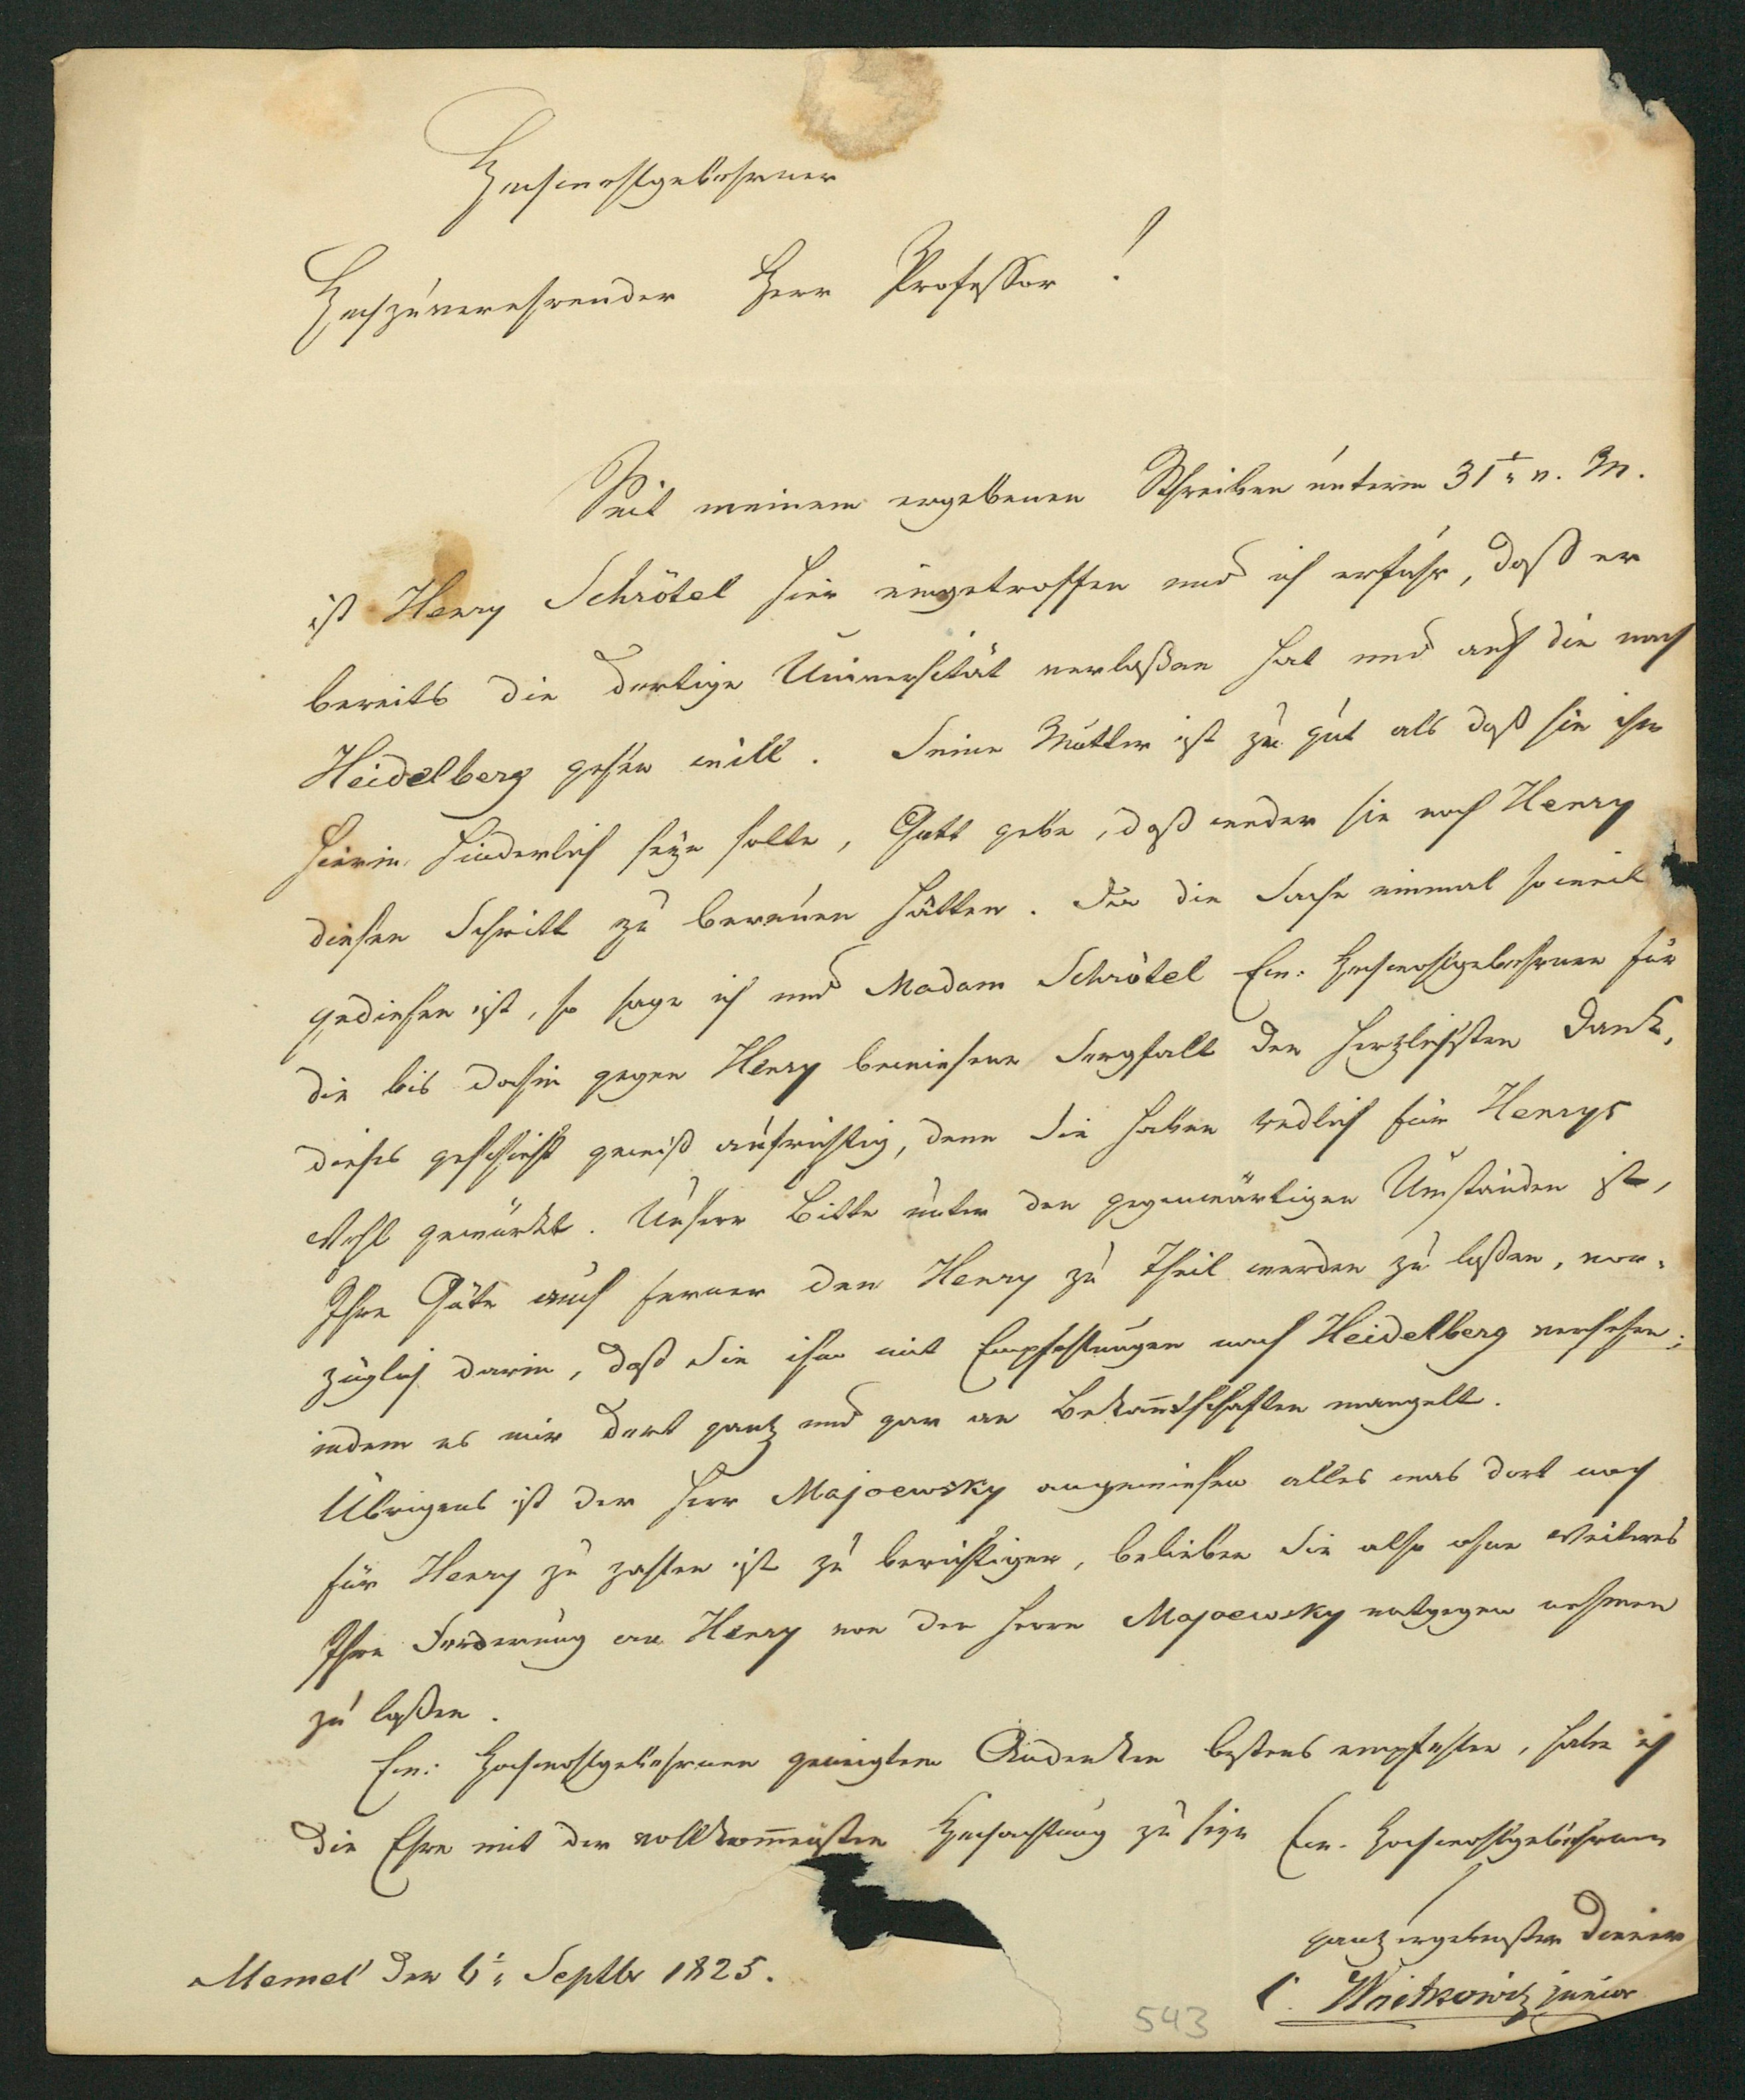 Hochwohlgebohrner
Hochzuverehrender Herr Professor!
Seit meinem ergebenen Schreiben unterm 31t. v. M.
ist Henry Schrötel hier eingetroffen und ich erfuhr, daß er
bereits die dortige Universität verlaßen hat und auf die nach
Heidelberg gehen will. Seine Mutter ist zu gut als daß sie ihm
hierin hinderlich seyn sollte, Gott gebe, daß weder sie noch Henry
diesen Schritt zu bereuen hätten. Da die Sache einmal so weit
gediehen ist, so sage ich und Madam Schrötel Ew: Hochwohlgebohrnen für
die bis dahin gegen Henry bewiesene Sorgfalt den herzlichsten Dank,
dieses geschieht gewiß aufrichtig, denn Sie haben redlich für Henrys
Wohl gewürkt. Unsere Bitte unter den gegenwärtigen Umständen ist,
Ihre Güte auch ferner den Henry zu Theil werden zu laßen, vor-
züglich darin, daß Sie ihn mit Empfehlungen nach Heidelberg versehen;
indem es mir dort ganz und gar an Bekanntschaften mangelt.
Übrigens ist der Herr Majoewsky angewiesen alles was dort noch
für Henry zu zahlen ist zu berichtigen, belieben Sie also ohne Weiteres
Ihre Forderung an Henry von den Herrn Majoewsky entgegen nehmen
zu laßen.
Ew: Hochwohlgebohrnen geneigtem Andenken bestens empfohlen, habe ich
die Ehre mit der vollkommensten Hochachtung zu seyn Ew. Hochwohlgebohrnen
ganz ergebenster Diener
Memel den 6t. Septbr 1825.
C. Woitkowitz junior
543